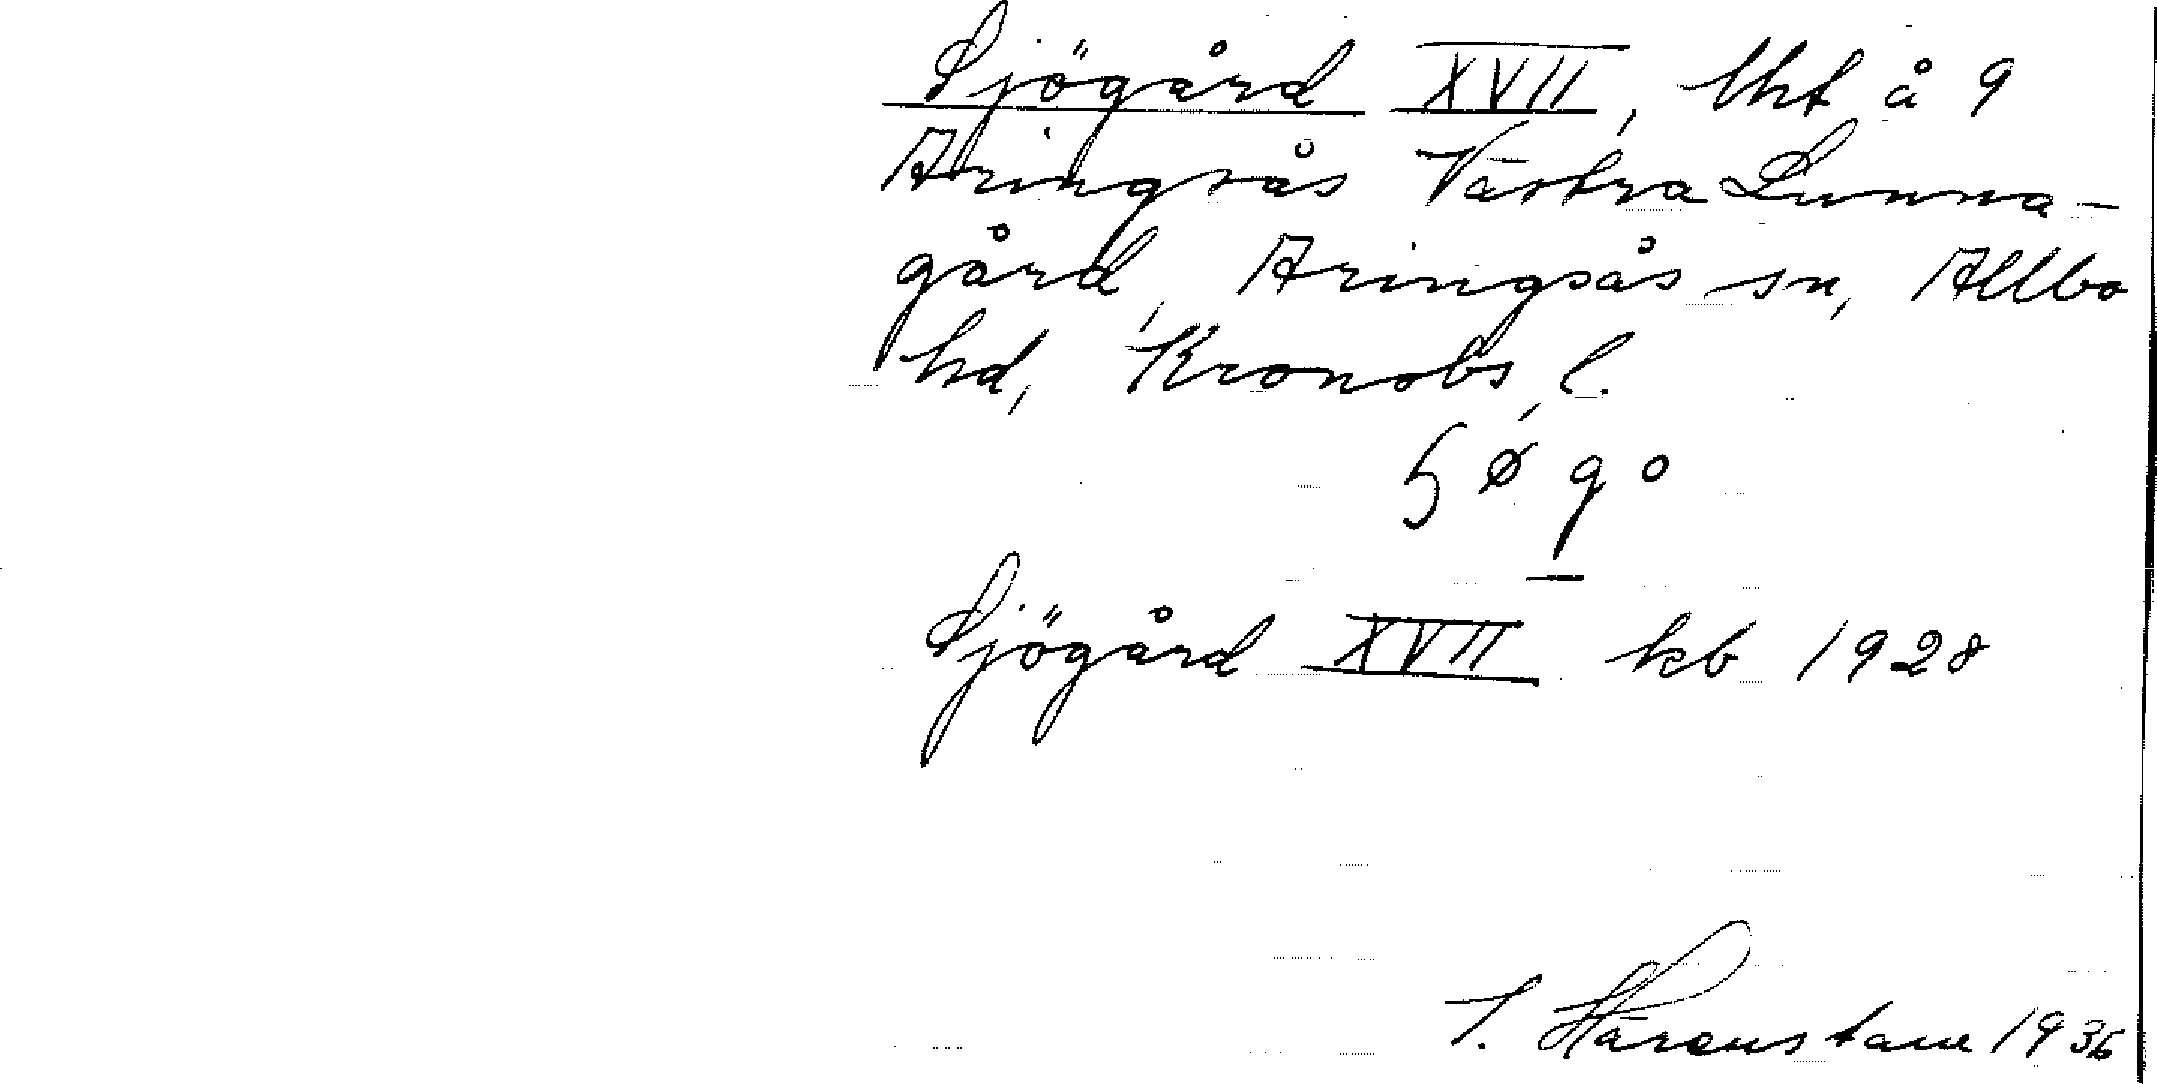 Sjögård XVII, lht å 9
Aringsås Västra Lunna-
gård, Aringsås sn, Allbo
hd, Kronobs l.
5 ø 9 o
Sjögård XVII kb 1928
1936